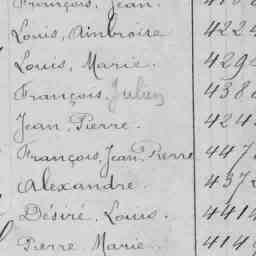 François, Jean.
Louis, Ambroise 422
Louis, Marie. 429
François, Julien 438
Jean, Pierre. 424
François, Jean, Pierre 447
Alexandre. 437
Désiré, Louis. 441
Pierre, Marie. 414